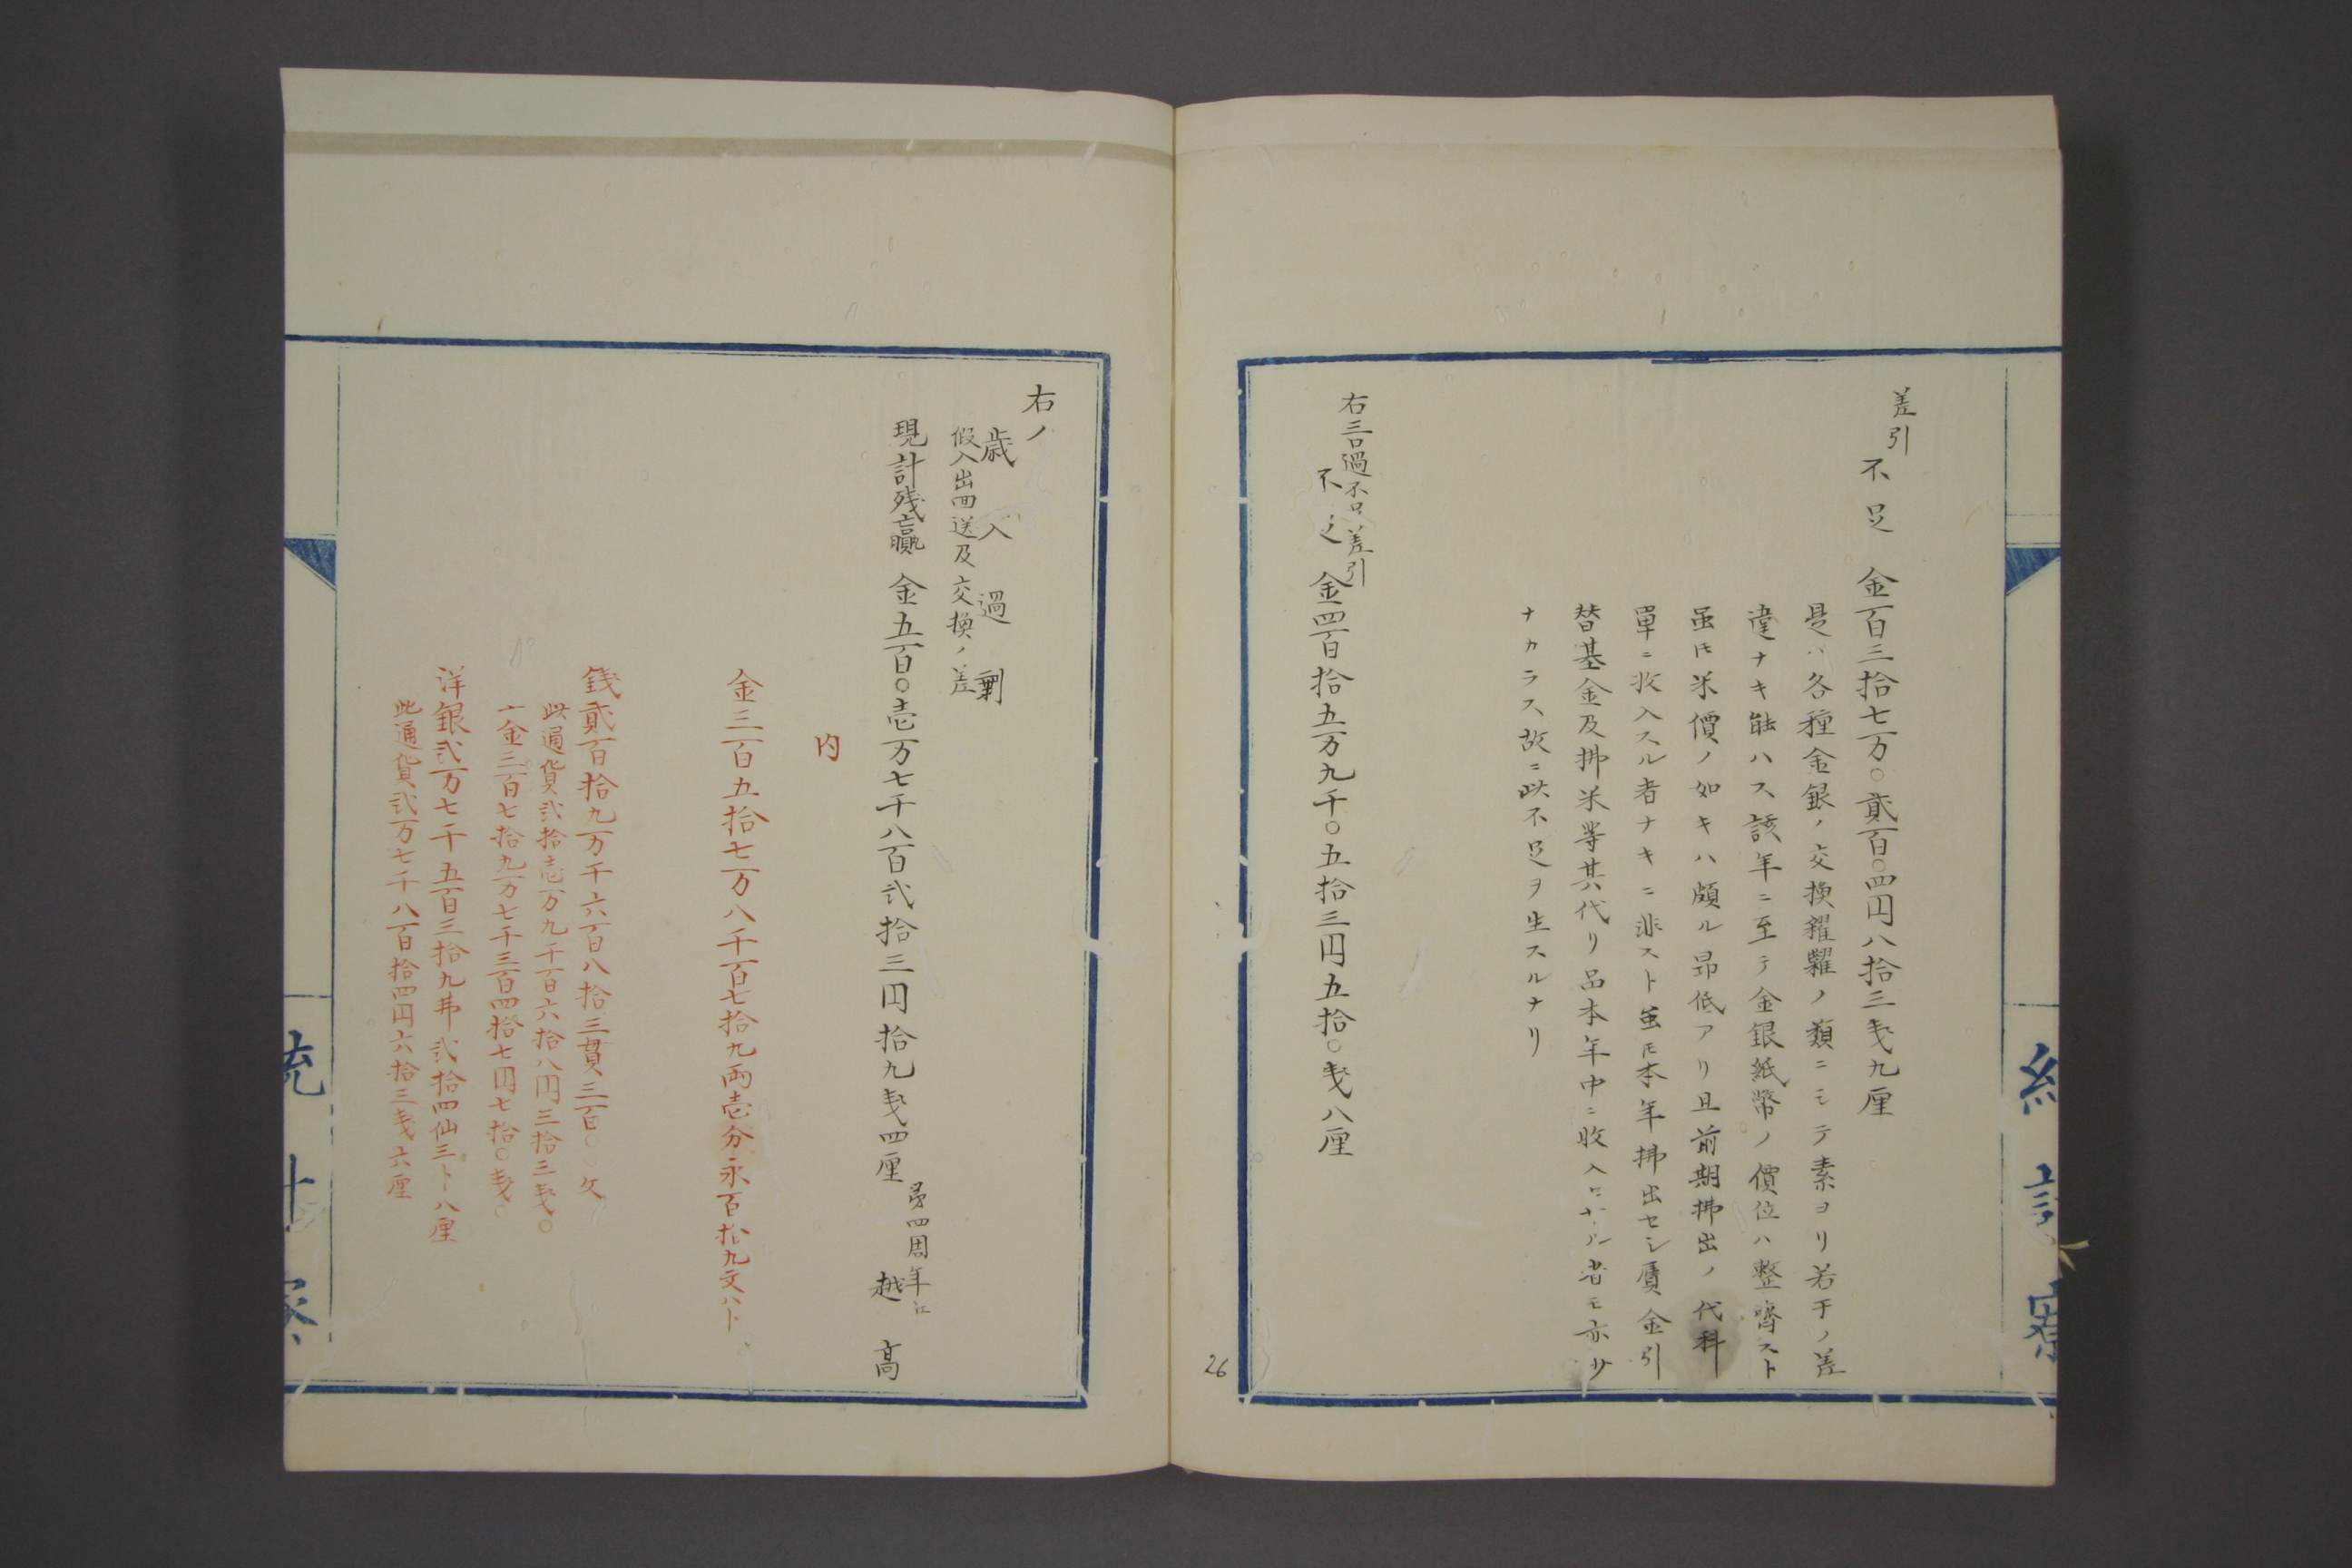 差引
不足　金百三拾七万〇貳百〇四円八拾三戋九厘
是ハ各種金銀ノ交換糴糶ノ類ニシテ素ヨリ若干ノ差
違ナキ能ハス該年ニ至テ金銀紙幣ノ價位ハ整齊スト
虽𪜈米價ノ如キハ頗ル昂低アリ且前期拂出ノ代料
單ニ收入スル者ナキニ非スト虽𪜈本年拂出セシ贋金引
替基金及拂米等其代リ品本年中ニ收入セサル者モ亦少
ナカラス故ニ此不足ヲ生スルナリ
右三口過不足差引
不足　金四百拾五万九千〇五拾三円五拾〇戋八厘
26
右ノ
歳入過剰
假入出回送及交換ノ差
現計残贏　金五百〇壱万七千八百弐拾三円拾九戋四厘　第四周年江
越高
内
金三百五拾七万八千百七拾九両壱分永百拾九文八ト
銭貳百拾九万千六百八拾三貫三百〇〇文
此通貨弐拾壱万九千百六拾八円三拾三戋〇
一金三百七拾九万七千三百四拾七円七拾〇戋〇
洋銀弐万七千五百三拾九弗弐拾四仙三ト八厘
此通貨弐万七千八百拾四円六拾三戋六厘
統計寮